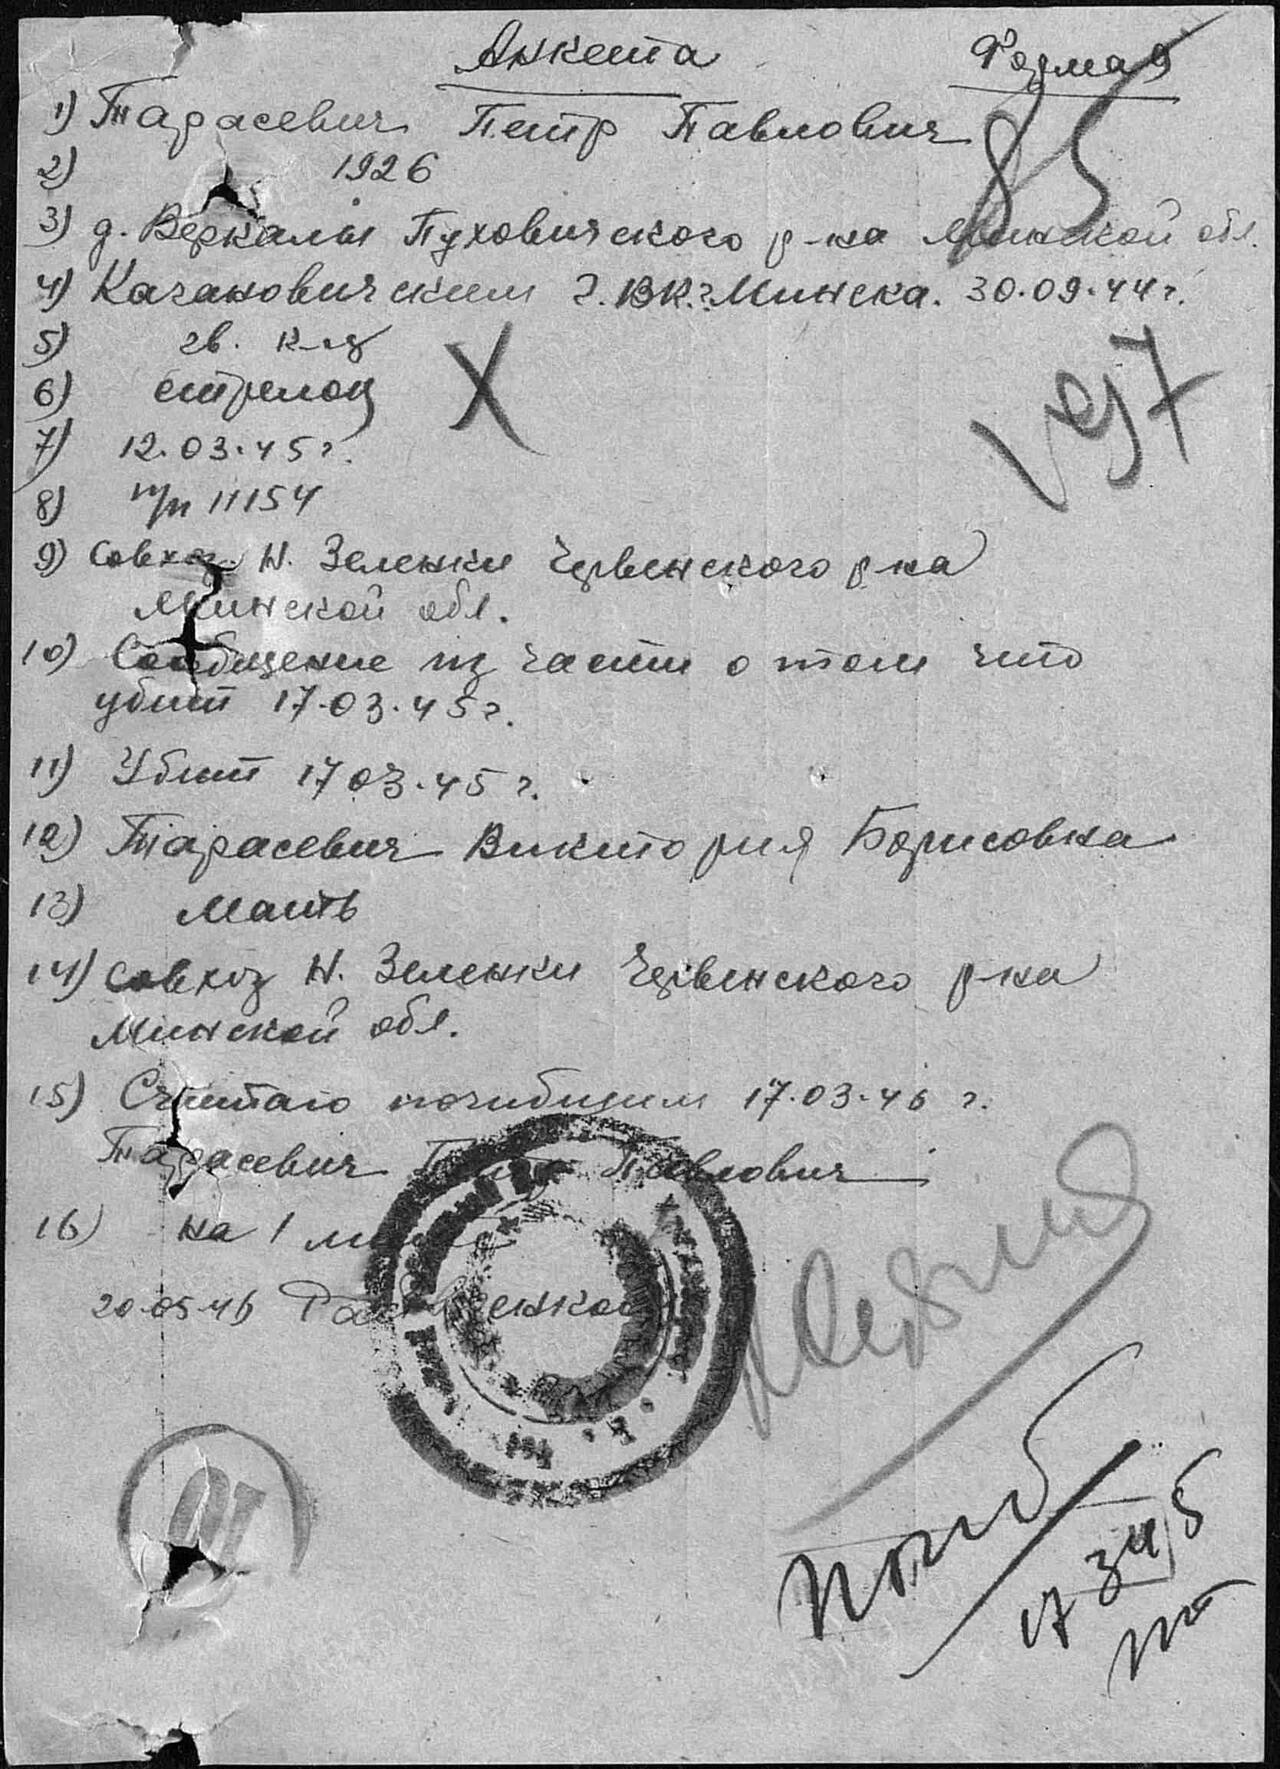 Анкета Форма 9
85
1) Тарасевич Петр Павлович
2) 1926
3) д. Веркалы Пуховичского р-на Минской обл.
4) Кагановичским Г.ВК. г. Минска. 30.09.44 г.
5) гв. к-ц
6) стрелок
7) 12.03.45 г.
8) п/п 11154
9) Совхоз Н. Зеленки Червенского р-на
Минской обл.
10) Сообщение из части о том что
убит 17.03.45 г.
11) Убит 17 03.45 г.
12) Тарасевич Виктория Борисовна
13) Мать
14) Совхоз Н. Зеленки Червенского р-на
Минской обл.
15) Считаю погибшим 17.03.45 г.
Тарасевич Петр Павлович
16) на 1 листе
20.05.46
погиб
17 3 45